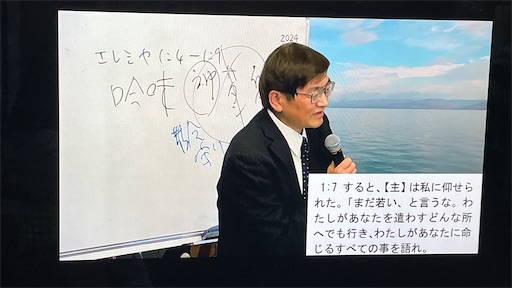 2024
エレミヤ1:4-1:9
吟味
1:7 すると、【主】は私に仰せら
れた。「まだ若い、と言うな。わ
たしがあなたを遣わすどんな所
へでも行き、わたしがあなたに命
じるすべての事を語れ。